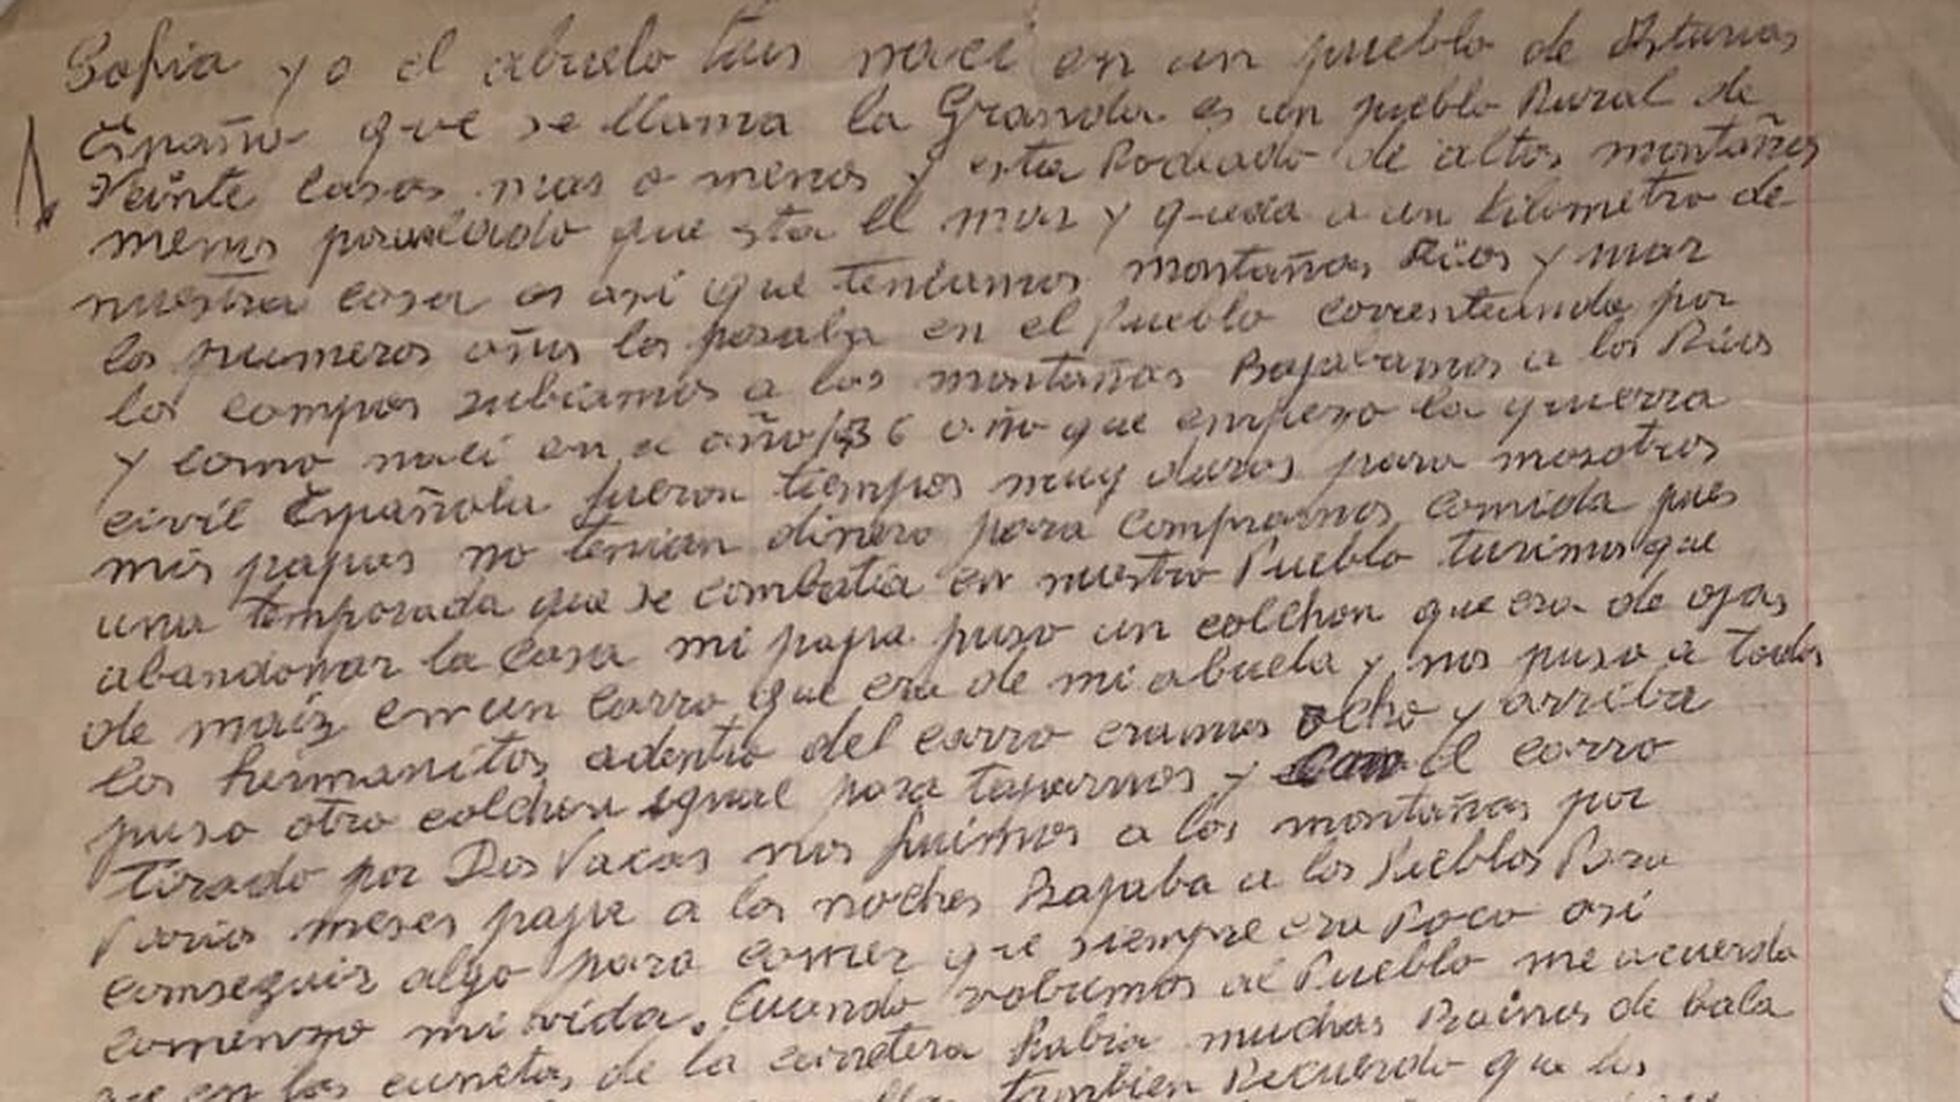 Sofia yo el abuelo Luis naci en un pueblo de Asturias
España que se llama la Granda es un pueblo Rural de
Veinte casas mas o menos y esta Rodeado de altas montañas
menos por el lado que esta el mar y queda a un kilometro de
nuestra casa es asi que teniamos montañas Rios y mar
los primeros años los pasaba en el Pueblo correteando por
los campos subiamos a las montañas Bajabamos a los Rios
y como naci en el año 36 año que empezo la guerra
civil Española fueron tiempos muy duros para nosotros
mis papas no tenian dinero para comprarnos comida pues
una temporada que se combatia en nuestro Pueblo tuvimos que
abandonar la casa mi papa puso un colchon que era de ojas
de maiz en un carro que era de mi abuela y nos puso a todos
los hermanitos adentro del carro eramos ocho y arriba
puso otro colchon igual para taparnos y con el carro
tirado por Dos Vacas nos fuimos a las montañas por
Varios meses papa a las noches Bajaba a los Pueblos Para
conseguir algo para comer que siempre era Poco asi
comenzo mi vida. Cuando volvimos al Pueblo me acuerdo
que en las cunetas de la carretera habia muchas Vainas de bala
tambien Recuerdo que los